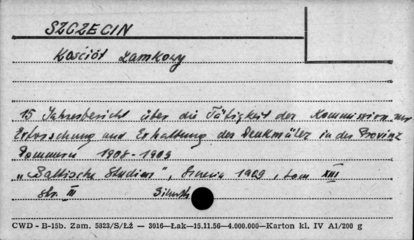 SZCZECIN
Kościół zamkowy
15 Jahresbericht über die Tätigkeit der Kommission zur
Erforschung und Erhaltung der Denkmäler in der Provinz
Pommern 1908-1909
„Baltische Studien", 1909, tom XIII
str. III
CWD - B-15b. Zam. 5823/S/Łż — 3016—Łak—15.11.56—4.000.000—Karton kl. IV A1/200 g